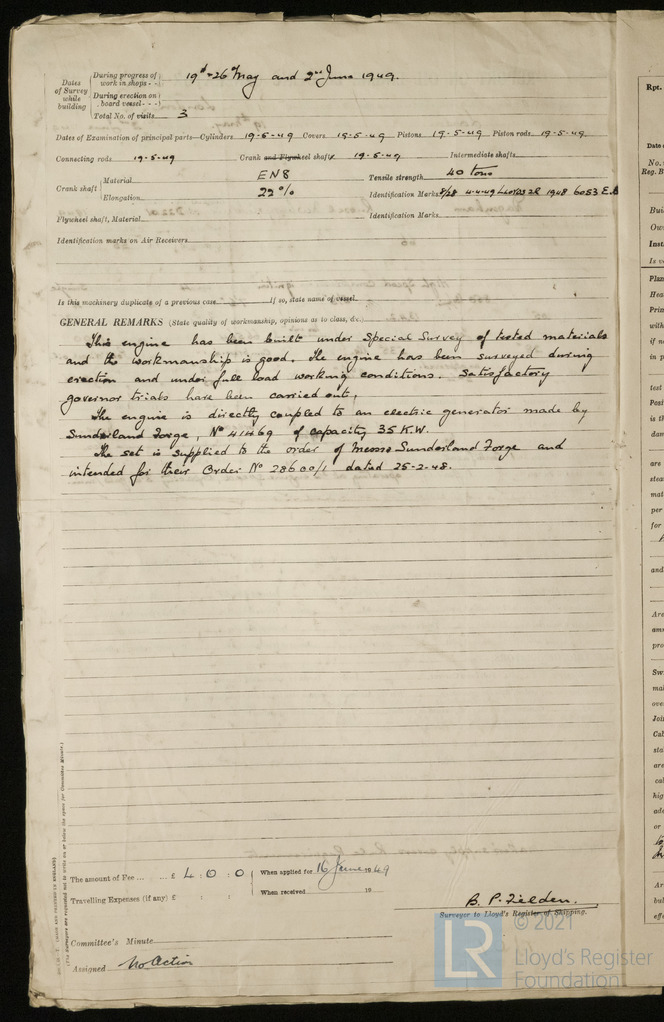 Dates of Survey while building
During progress of work in shops - - 19th - 26th May and 2nd June 1949.
During erection on board vessel - - -
Total No. of visits 3
Dates of Examination of principal parts—Cylinders 19-5-49 Covers 19-5-49 Pistons 19-5-49 Piston rods 19-5-49
Connecting rods 19-5-49 Crank and Flywheel shafts 19-5-49 Intermediate shafts
Crank shaft Material EN8 Tensile strength 40 tons
Elongation 22% Identification Marks 4-4-49 Lloyds 1948 6053
Flywheel shaft, Material Identification Marks
Identification marks on Air Receivers
Is this machinery duplicate of a previous case If so, state name of vessel
GENERAL REMARKS (State quality of workmanship, opinions as to class, &c.)
This engine has been built under Special Survey of tested materials
and the workmanship is good. The engine has been surveyed during
erection and under full load working conditions. Satisfactory
governor trials have been carried out.
The engine is directly coupled to an electric generator made by
Sunderland Forge, No 41469 of capacity 35 K.W.
The set is supplied to the order of Messrs Sunderland Forge and
intended for their Order No 28600/1 dated 25-2-48.
The amount of Fee ... ... £ 4 : 0 : 0 When applied for 16 June 1949
Travelling Expenses (if any) £ : : When received 19
B. P. Fielden.
Surveyor to Lloyd's Register of Shipping.
Committee's Minute
Assigned No Action
(The Surveyors are requested not to write on or below the space for Committee Minute.)
Rpt.
Date
No.
Reg. B
Bui
Own
Inst
Is v
Plan
Hea
Prin
with
if n
in p
test
Posi
is th
dam
are
stea
mat
per
for
and
Are
ame
pro
Sw
mai
ove
Join
Cab
sta
are
cab
hig
ade
or
Ar
bul
effe
LR
© 2021
Lloyd's Register
Foundation